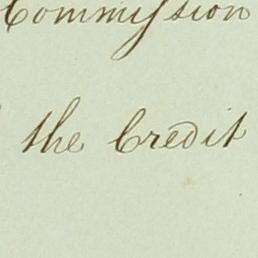 Commiſsion
the Credit